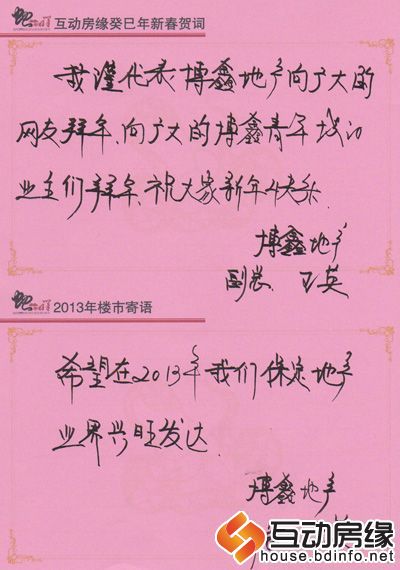 互动房缘癸巳年新春贺词
我谨代表博鑫地产向广大的
网友拜年,向广大的博鑫青年城的
业主们拜年.祝大家新年快乐.
博鑫地产
副总 王英
2013年楼市寄语
希望在2013年我们保定地产
业界兴旺发达.
博鑫地产
互动房缘
house.bdinfo.net